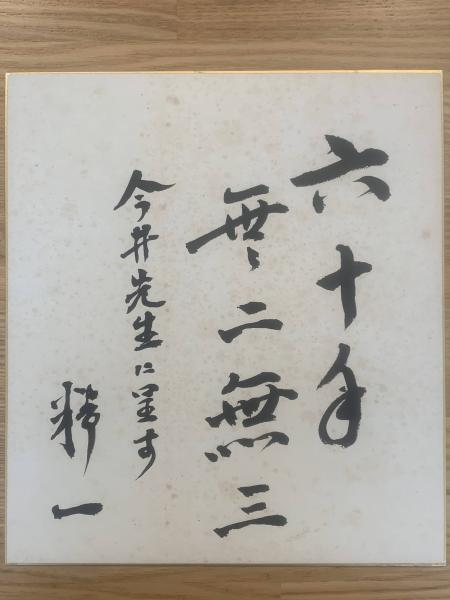 六十年
無二無三
今井先生に呈す
精一